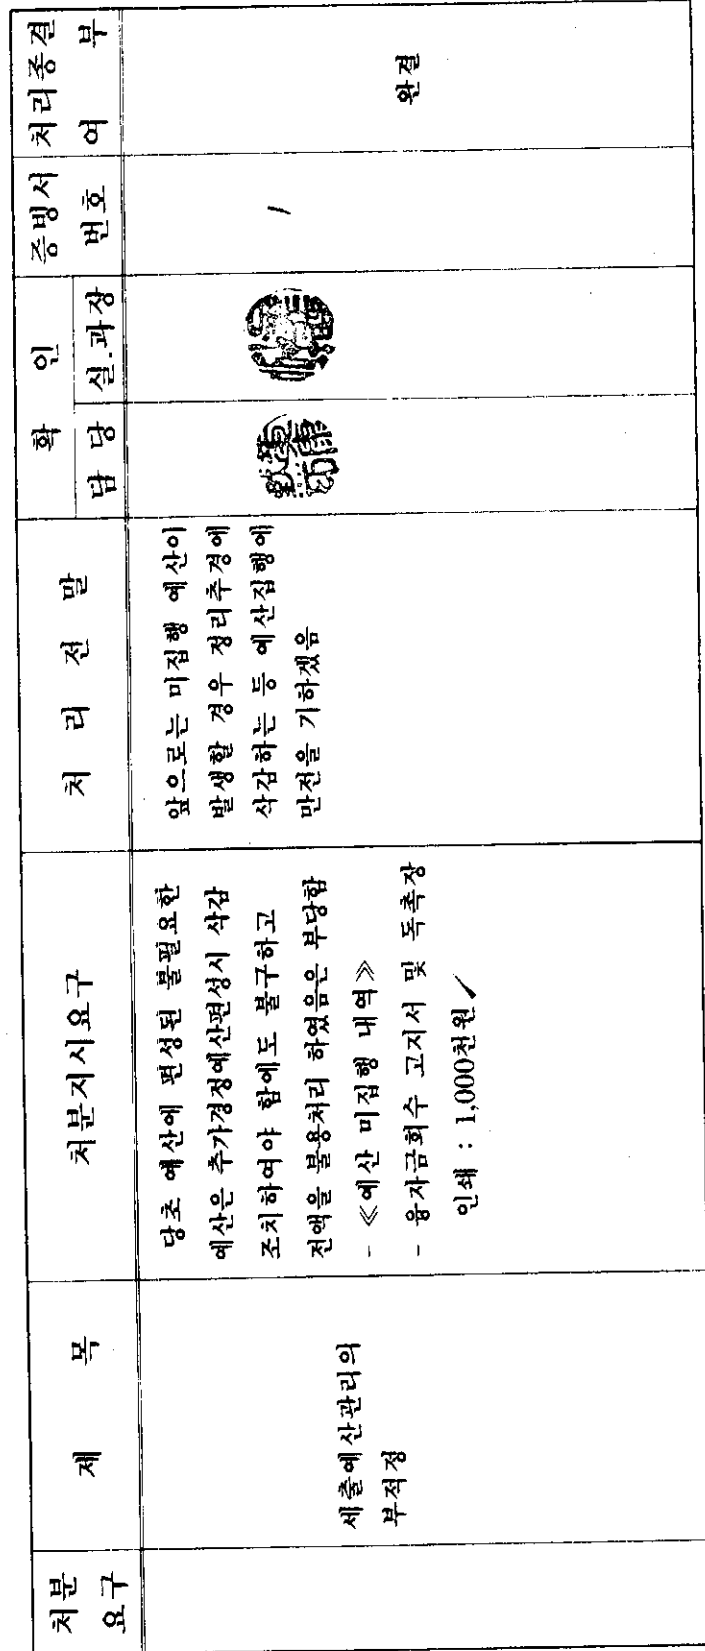 처분
요구
제 목
처분지시요구
처 리 전 말
확 인
담 당
실.과장
증빙서
번호
처리종결
여 부
세출예산관리의
부적정
당초 예산에 편성된 불필요한
예산은 추가경정예산편성시 삭감
조치하여야 함에도 불구하고
전액을 불용처리 하였음은 부당함
- ≪예산 미집행 내역≫
- 융자금회수 고지서 및 독촉장
인쇄 : 1,000천원
앞으로는 미집행 예산이
발생할 경우 정리추경에
삭감하는 등 예산집행에
만전을 기하겠음
1
완결